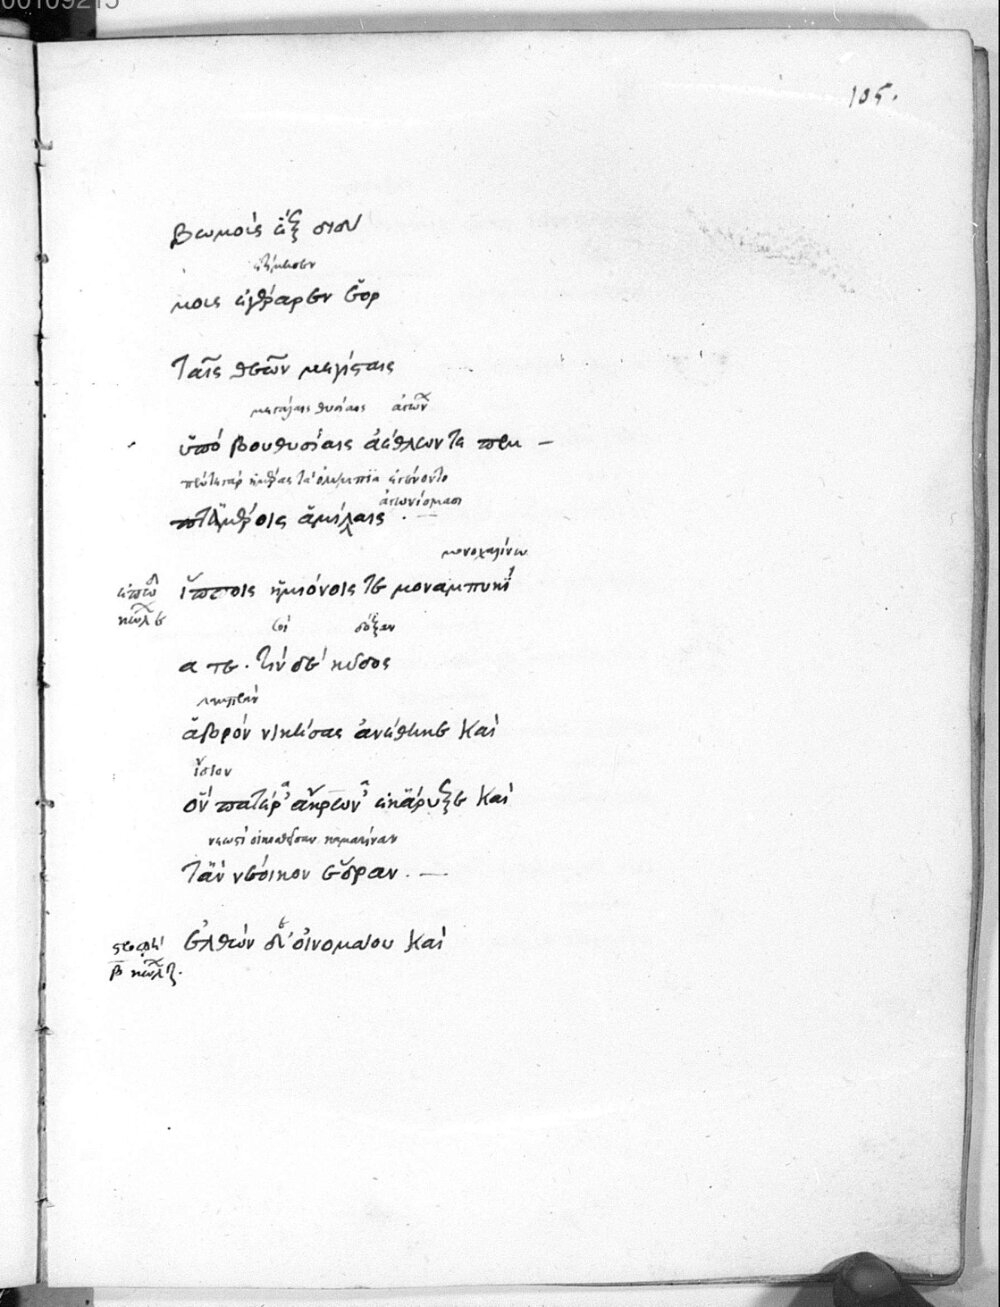 00109215
105.
βωμοὶς ἓξ διδύ
ἐτίμησεν
μοις ἐγέραρεν ἑορ
Ταῖς θεῶν μεγίσταις
μεγάλαις θυσίαις ἀγών
ὑπὸ βουθυσίαις ἀέθλων τε πεμ –
ἀγωνίσμασι
πταμέροις ἁμίλλαις . —
μοναχαλίνω
ἐπωδ ἵπποις ἡμιόνοις τε μοναμπυκί
κώλ ε
σοὶ δόξαν
α τε . τὶν δὲ κῦδος
λαμπρὰν
ἁβρὸν νικάσας ἀνέθηκε καὶ
ἴδιον
ὃν πατέρ' ἄκρων' ἐκάρυξε καὶ
νεωστὶ οἰκισθεῖσαν καμαρίναν
Τὰν νέοικον ἕδραν . —
στροφὴ ἐλθὼν δ' οἰνομάου καὶ
β κώλ ζ.